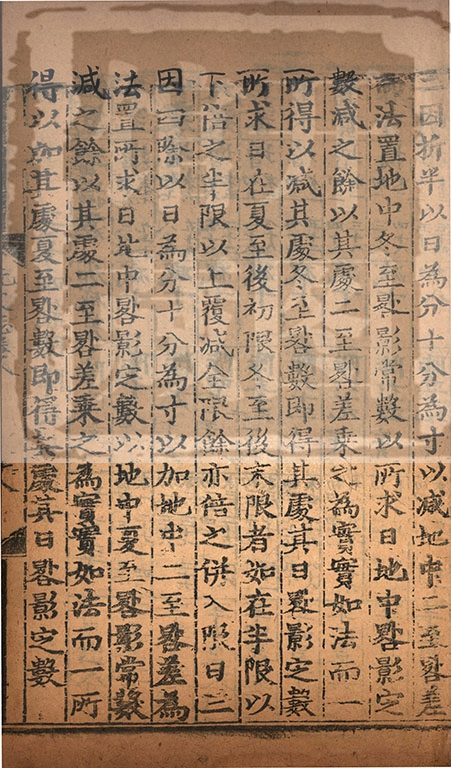 三因折半以日為分十分為寸以减地中二至晷差
為法置地中冬至晷影常數以所求日地中晷影定
數减之餘以其處二至晷差乗之為實實如法而一
所得以减其處冬至晷數即得其處其日晷影定數
所求日在夏至後初限冬至後末限者如在半限以
下倍之半限以上覆减全限餘亦倍之併入限日三
因四𦂯以日為分十分為寸以加地中二至晷差為
法置所求日地中晷影定數以地中夏至晷影常數
减之餘以其處二至晷差乗之為實實如法而一所
得以加其處夏至晷數即得其處其日晷影定數